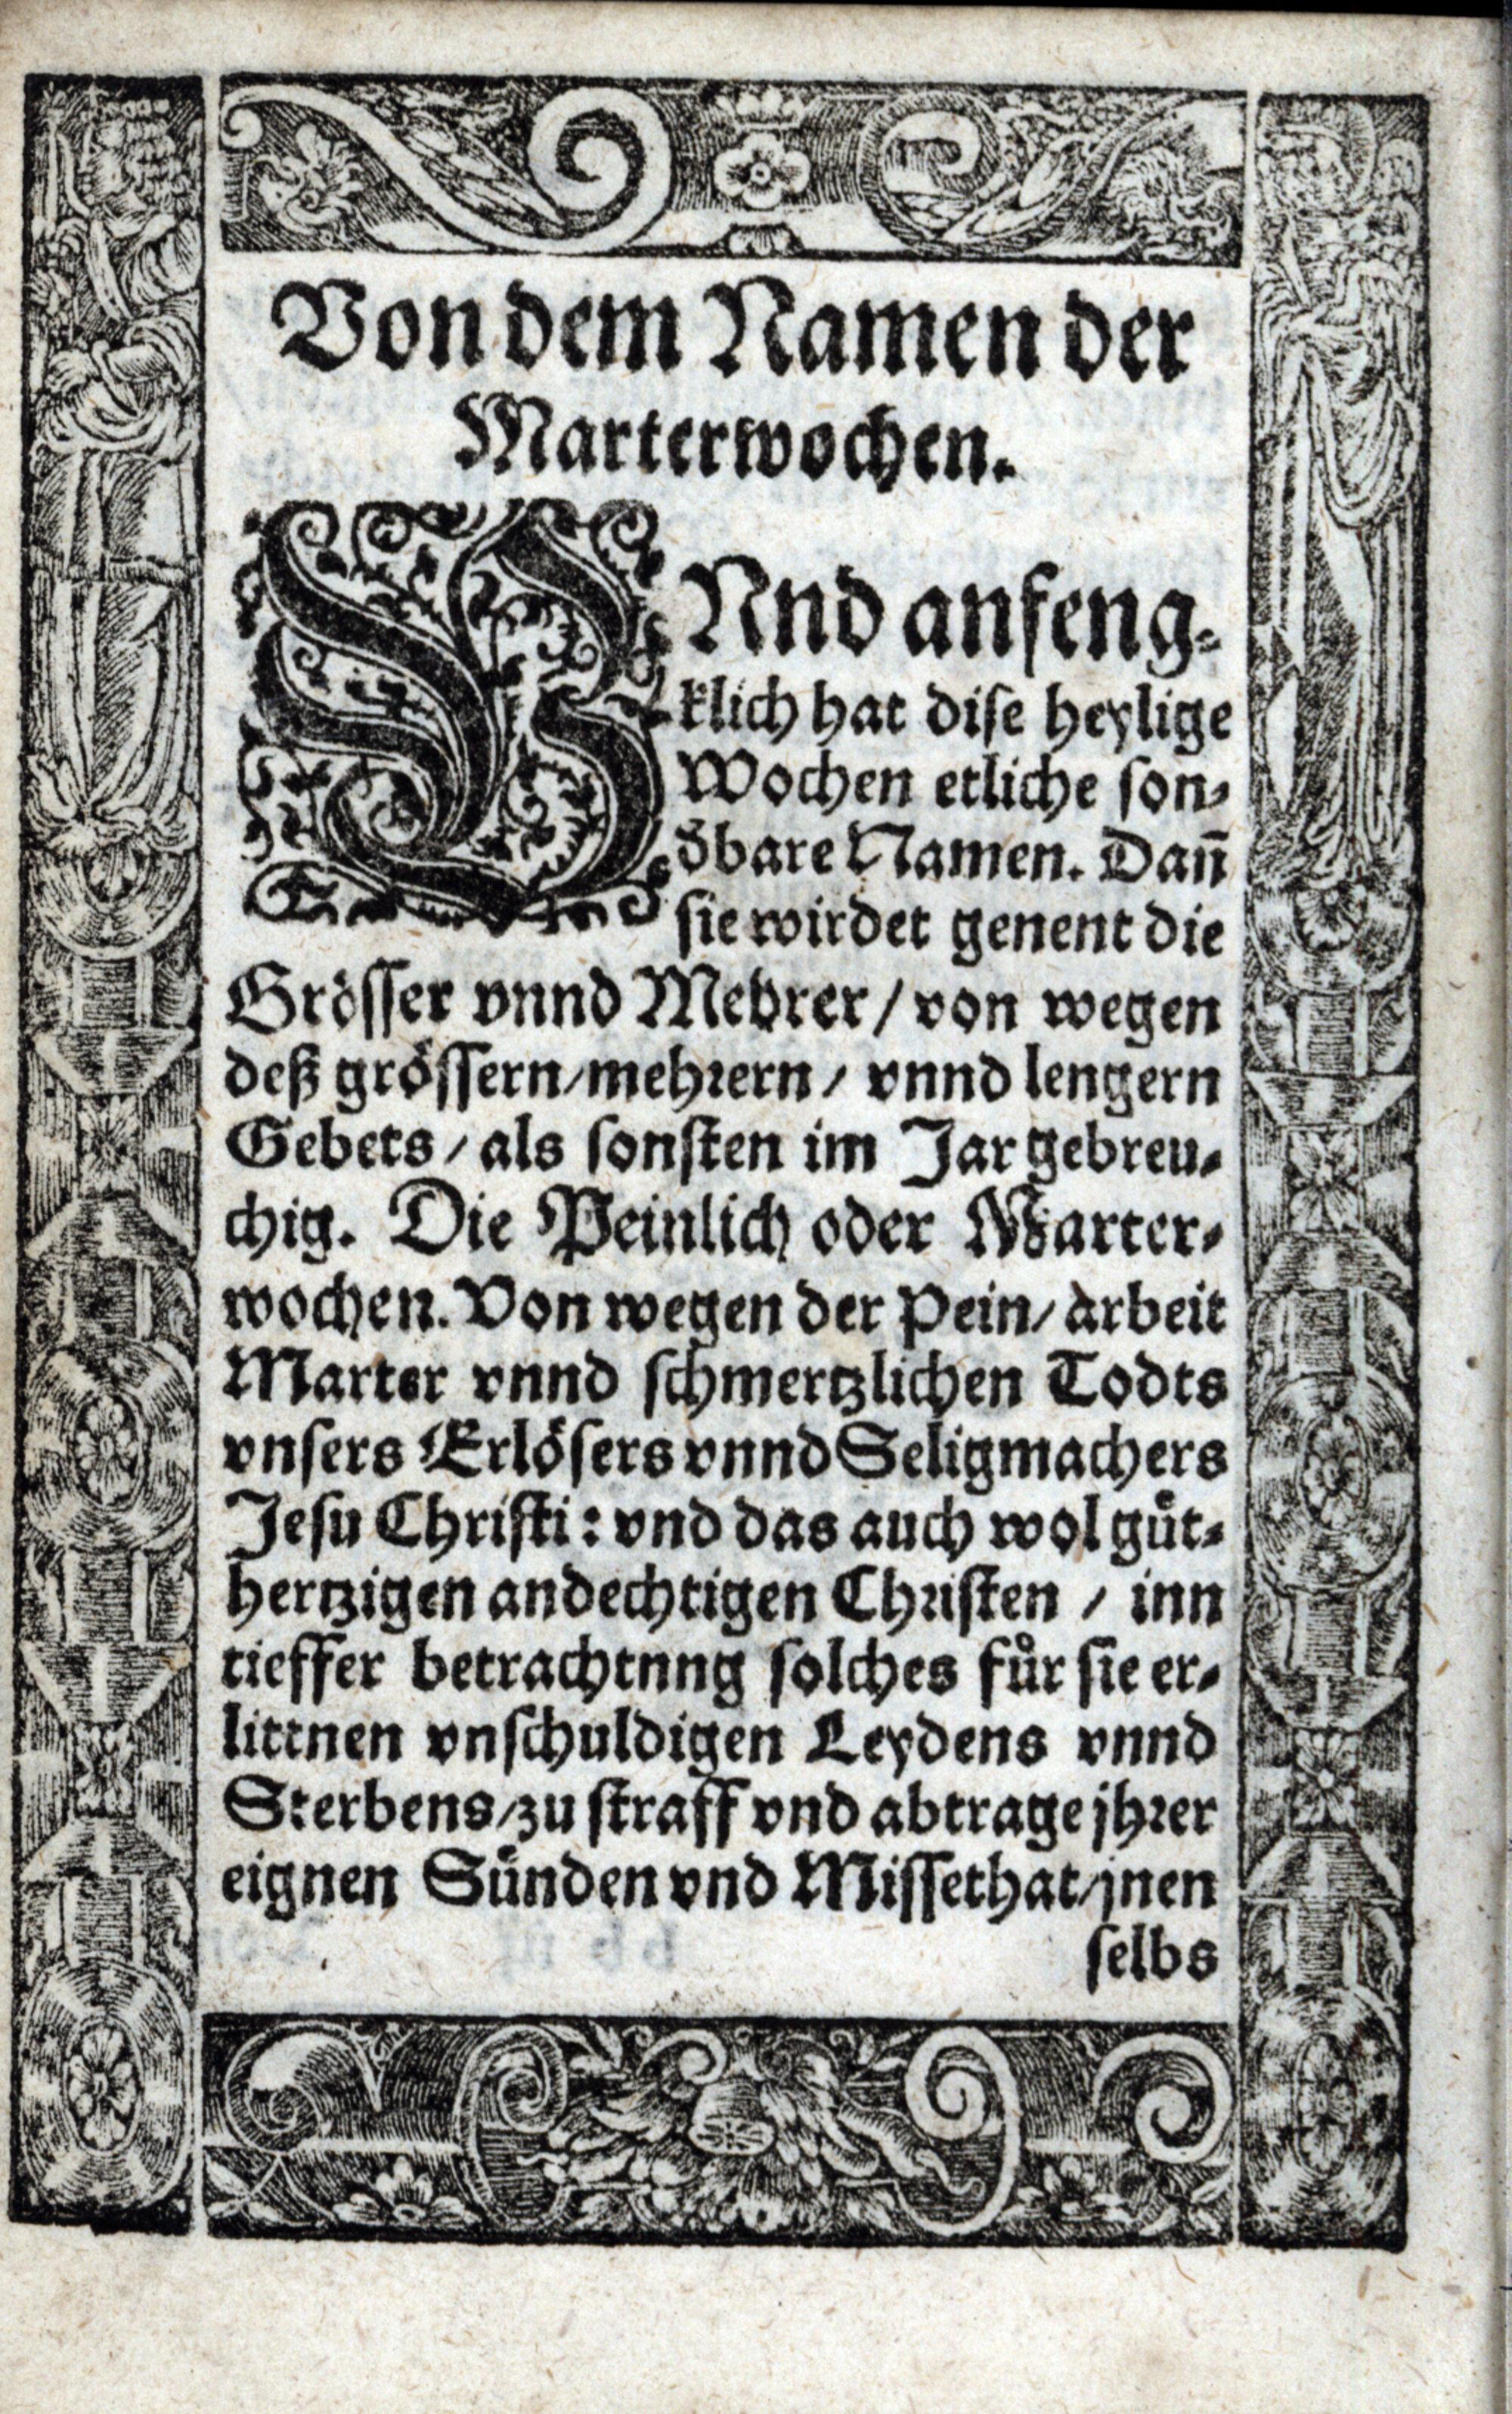 Von dem Namen der
Marterwochen.
VNnd anfeng⸗
klich hat diſe heylige
Wochen etliche ſon⸗
d̄bare Namen. Dañ
ſie wirdet genent die
Gröſſer vnnd Mehrer / von wegen
deß gröſſern / mehrern / vnnd lengern
Gebets / als ſonſten im Jar gebreu⸗
chig. Die Peinlich oder Marter⸗
wochen. Von wegen der Pein / arbeit
Marter vnnd ſchmertzlichen Todts
vnſers Erlöſers vnnd Seligmachers
Jeſu Chriſti : vnd das auch wol gůt⸗
hertzigen andechtigen Chriſten / inn
tieffer betrachtnng ſolches fuͤr ſie er⸗
littnen vnſchuldigen Leydens vnnd
Sterbens / zu ſtraff vnd abtrage jhrer
eignen Suͤnden vnd Miſſethat / jnen
ſelbs